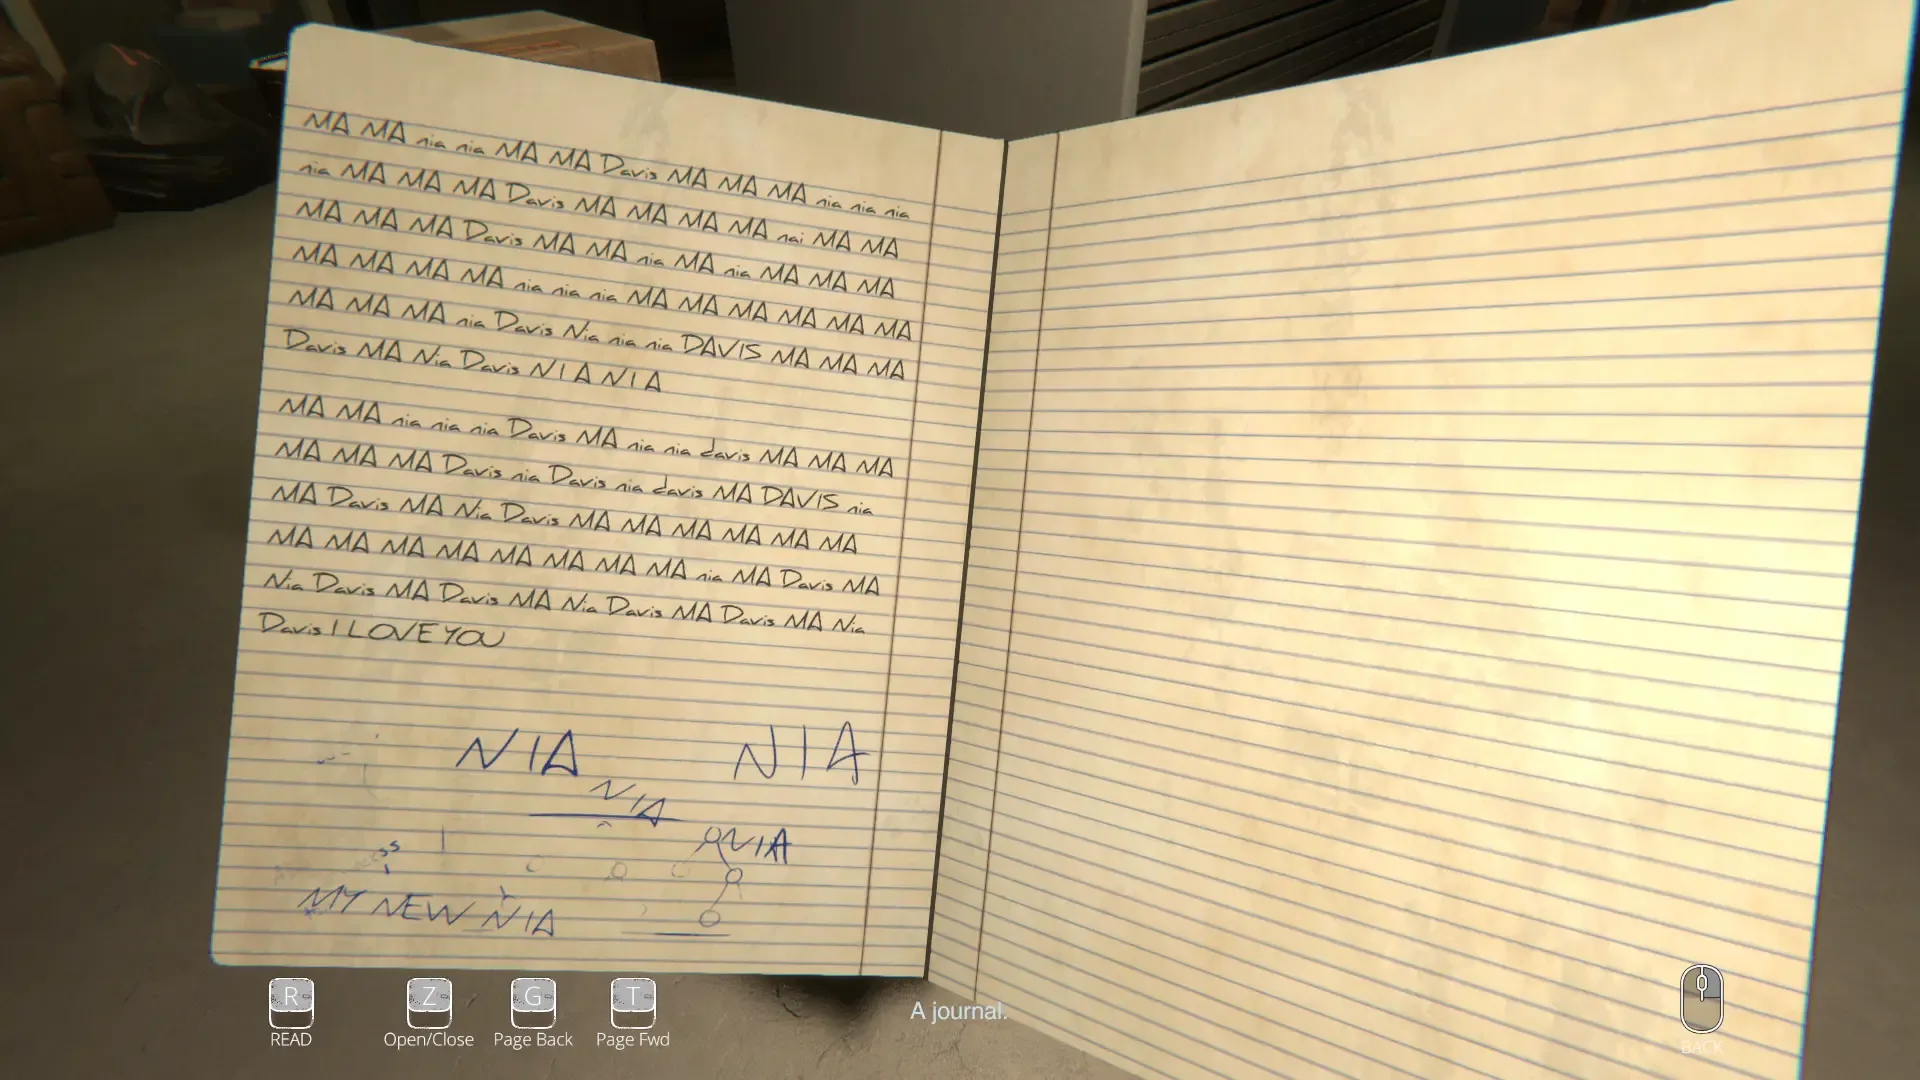 MA MA nia nia MA MA Davis MA MA MA nia nia nia
nia MA MA MA Davis MA MA MA MA nai MA MA
MA MA MA Davis MA MA nia MA nia MA MA MA
MA MA MA MA nia nia nia MA MA MA MA MA MA
MA MA MA nia Davis Nia nia nia DAVIS MA MA MA
Davis MA Nia Davis N I A N I A
MA MA nia nia nia Davis MA nia nia davis MA MA MA
MA MA MA Davis nia Davis nia davis MA DAVIS nia
MA Davis MA Nia Davis MA MA MA MA MA MA
MA MA MA MA MA MA MA MA nia MA Davis MA
Nia Davis MA Davis MA Nia Davis MA Davis MA Nia
Davis I LOVE YOU
NIA NIA
NIA
NIA
MY NEW NIA
A journal.
R Z G T
READ Open/Close Page Back Page Fwd BACK